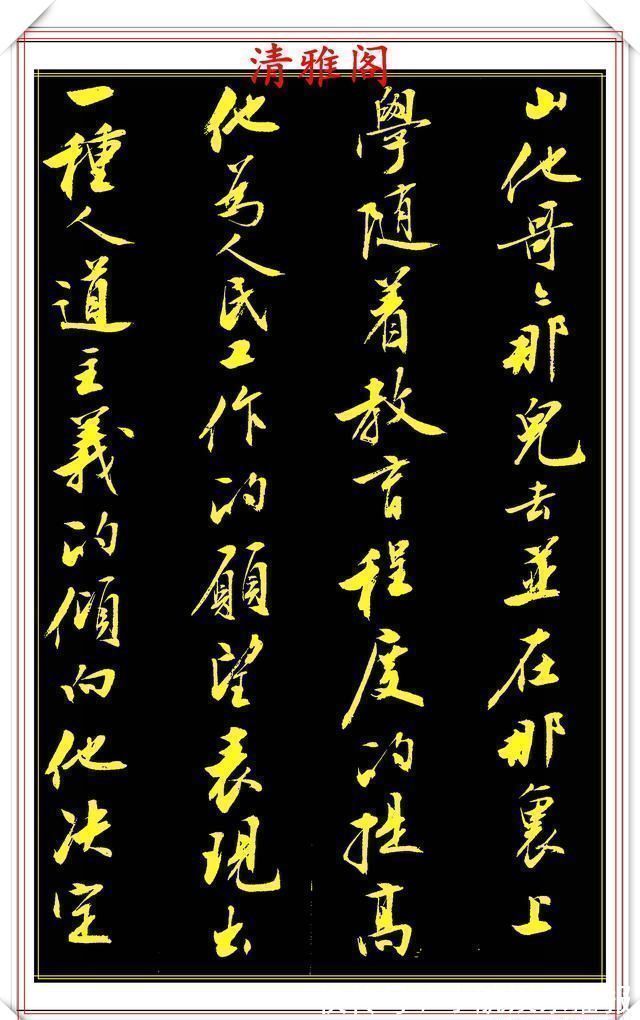 清雅阁
山他哥〻那兒去並在那裏上
學随着教育程度的提高
他為人民工作的願望表現出
一種人道主義的傾向他决定